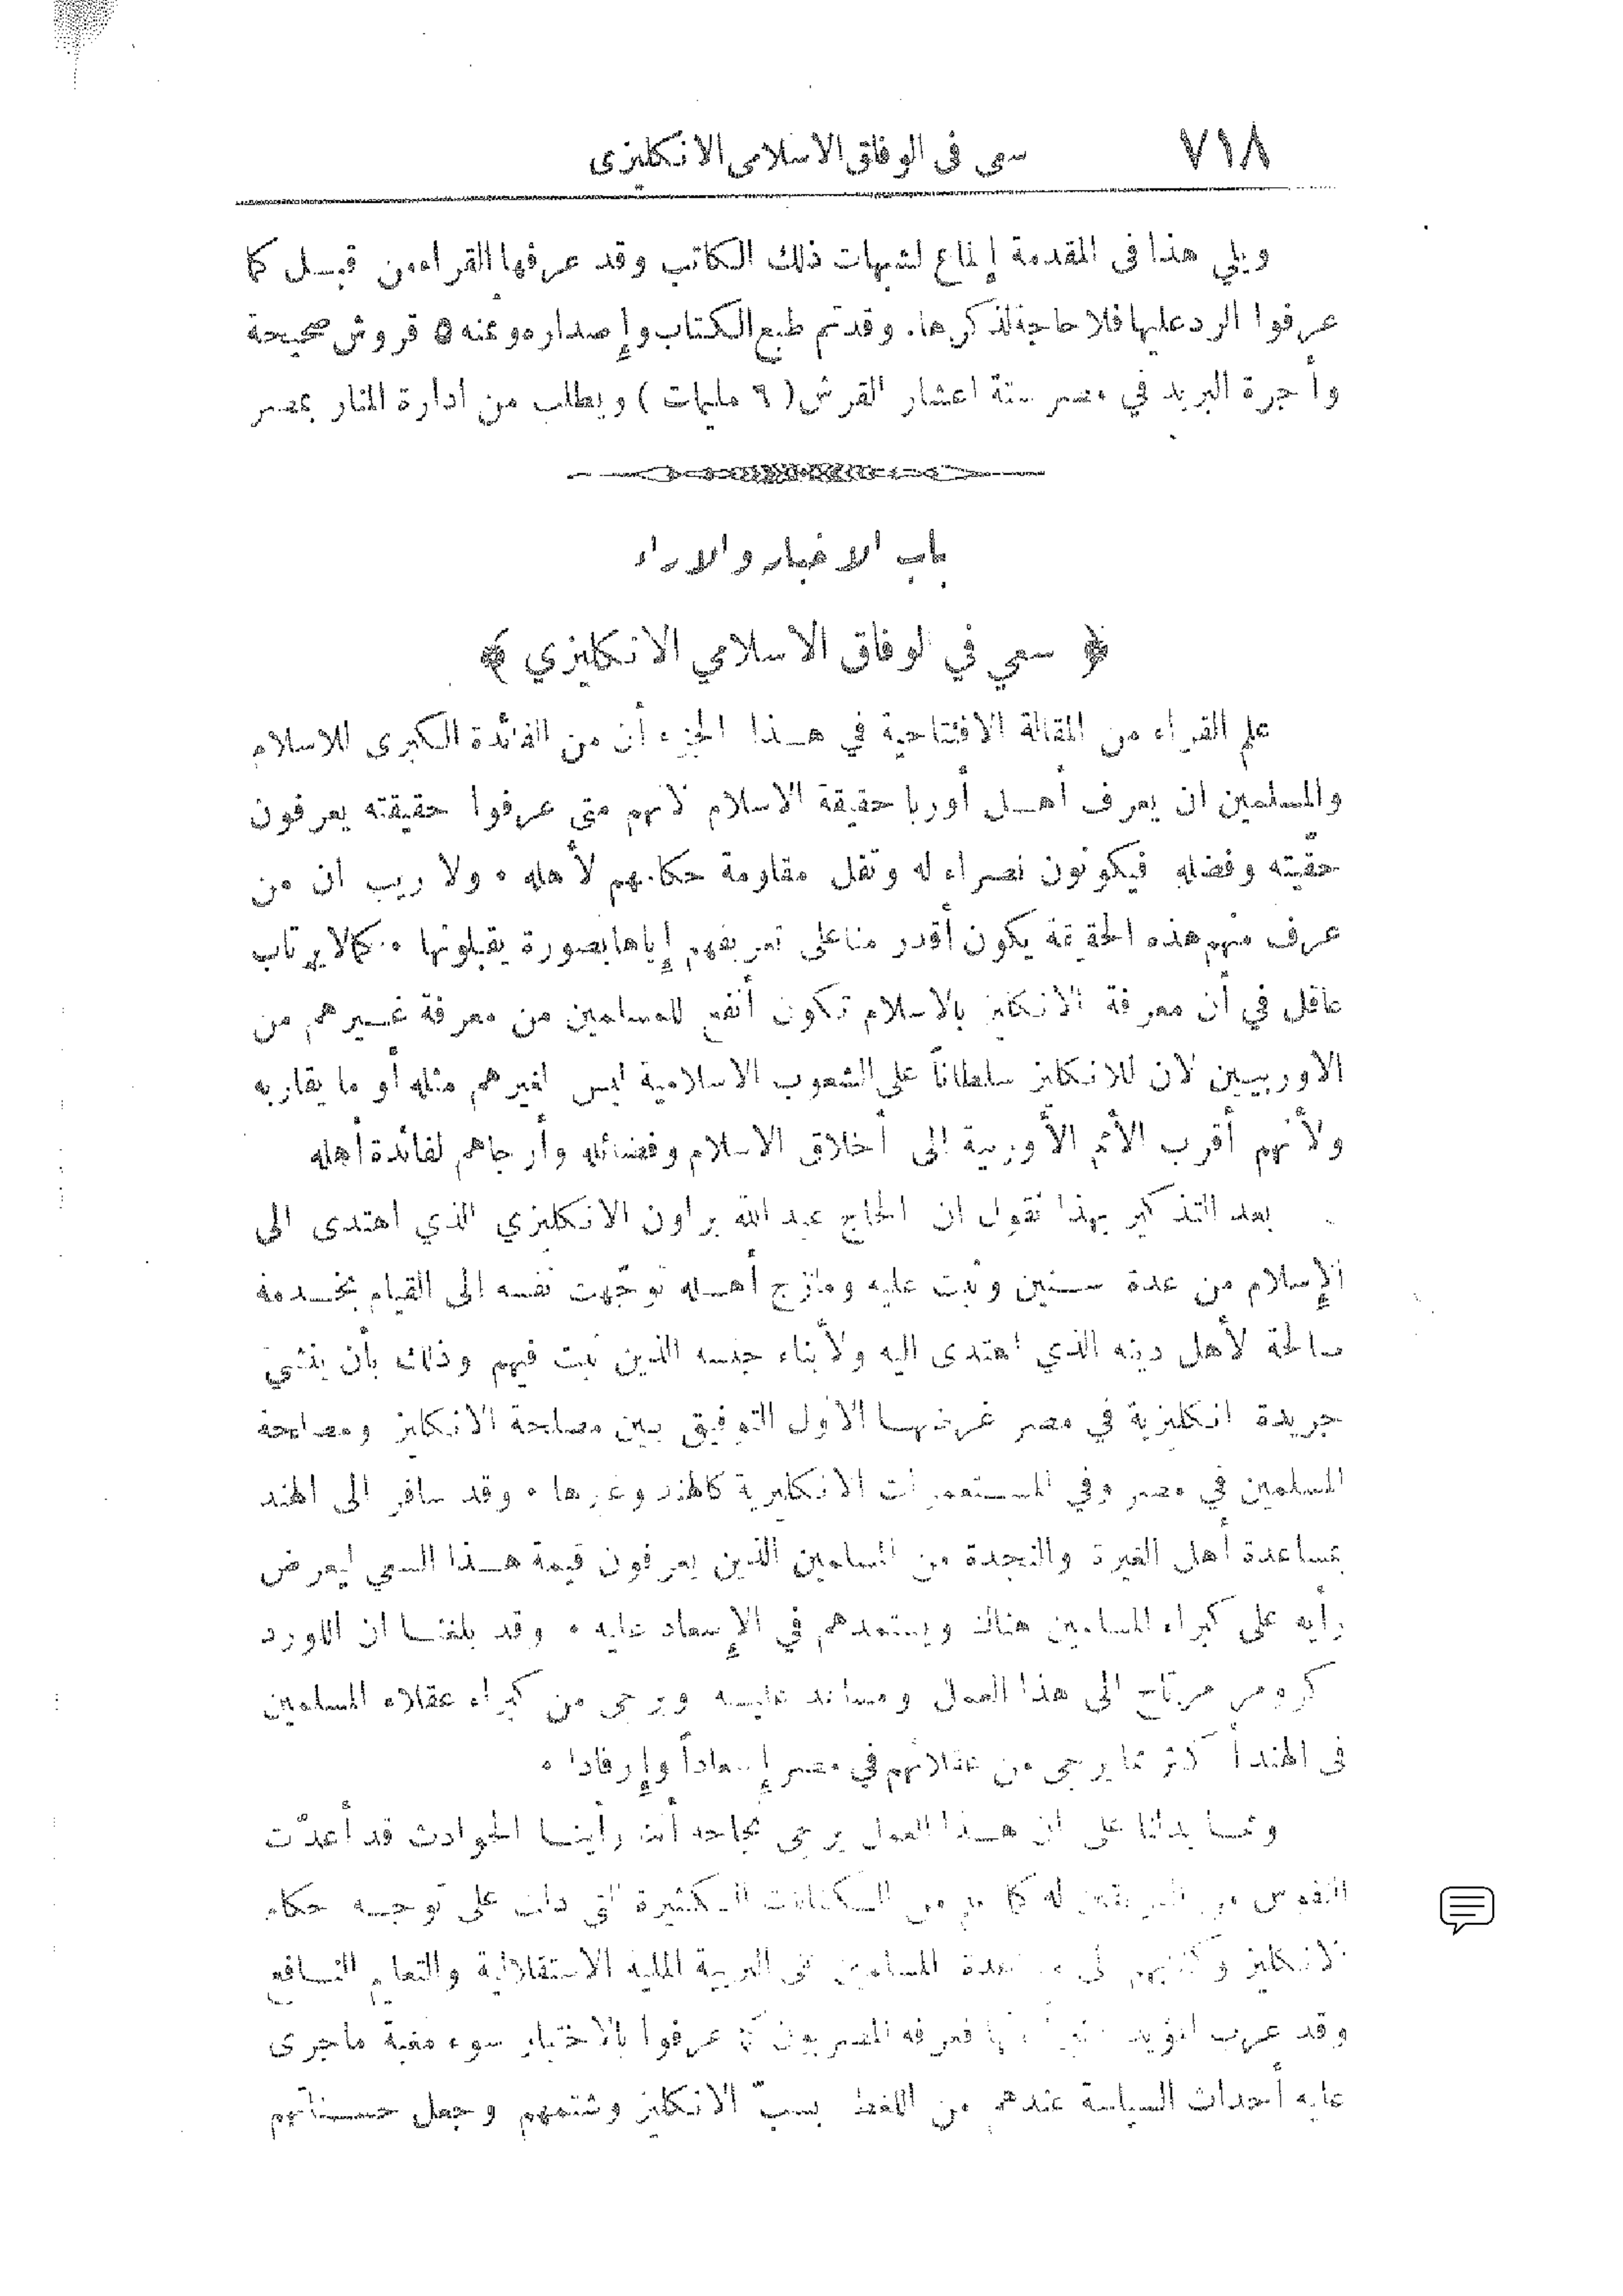 ٧١٨ سعي في الوفاق الاسلامي الانكليزي
ويلي هذا في المقدمة إلماع لشبهات ذلك الكاتب وقد عرفها القراء من قبـل كما
عرفوا الرد عليها فلا حاجة لذكرها. وقد تم طبع الكتاب وإصداره وثمنه ٥ قروش صحيحة
وأجرة البريد في مصر ستة اعشار القرش (٦ مليمات) ويطلب من ادارة المنار بمصر
باب الاخبار والاراء
﴿ سعي في الوفاق الاسلامي الانكليزي ﴾
علم القراء من المقالة الافتتاحية في هـذا الجزء أن من الفائدة الكبرى للاسلام
والمسلمين ان يعرف أهـل أوربا حقيقة الاسلام لانهم متى عرفوا حقيقته يعرفون
حقّيته وفضله فيكونون نصراء له وتقل مقاومة حكامهم لأهله ٠ ولا ريب ان من
عرف منهم هذه الحقيقة يكون أقدر منا على تعريفهم إياها بصورة يقبلونها ٠ كما لا يرتاب
عاقل في أن معرفة الانكليز بالاسلام تكون أنفع للمسلمين من معرفة غـيرهم من
الاوربيـين لان للانكليز سلطاناً على الشعوب الاسلامية ليس لغيرهم مثله أو ما يقاربه
ولأنهم أقرب الأمم الأوربية الى أخلاق الاسلام وفضائله وأرجاهم لفائدة أهله
بعد التذكير بهذا نقول ان الحاج عبد الله براون الانكليزي الذي اهتدى الى
الإسلام من عدة سـنين وثبت عليه ومازج أهـله توجّهت نفسه الى القيام بخـدمة
صالحة لأهل دينه الذي اهتدى اليه ولأبناء جنسه الذين نبت فيهم وذلك بأن ينشئ
جريدة انكليزية في مصر غرضهـا الاول التوفيق بين مصلحة الانكليز ومصلحة
المسلمين في مصر وفي المسـتعمرات الانكليزية كالهند وغيرها ٠ وقد سافر الى الهند
بمساعدة أهل الغيرة والنجدة من المسلمين الذين يعرفون قيمة هـذا السعي ليعرض
رأيه على كبراء المسلمين هناك ويستمدهم في الإسعاد عليه ٠ وقد بلغنـا ان اللورد
كرومر مرتاح الى هذا العمل ومساعد عليـه ويرجى من كبراء عقلاء المسلمين
في الهند أكثر مما يرجى من عقلائهم في مصر إسعاداً وإرفادا ٠
وممـا يدلنا على ان هـذا العمل يرجى نجاحه أننا رأينـا الحوادث قد أعدّت
النفوس من الفريقين له كما من الكتابات الكثيرة التي دلت على توجـه حكام
الانكليز وكتّابهم الى مساعدة المسلمين في التربية الملية الاستقلالية والتعليم النـافع
وقد عرب المؤيد فعرفه المصريون كما عرفوا بالاختبار سوء مغبة ماجرى
عليه أحداث السياسة عندهم من اللغط بسبّ الانكليز وشتمهم وجعل حسـناتهم